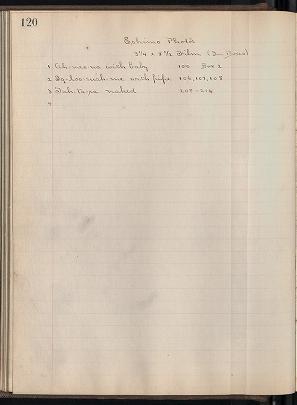 120
Eskimo Photos
3¼ x 5½ Film (In Boxes)
1 Ah-nee-na with baby 100 Box 2
2 Ig-loo-suah-me with pipe 106, 107, 108
3 naked 208-214
4